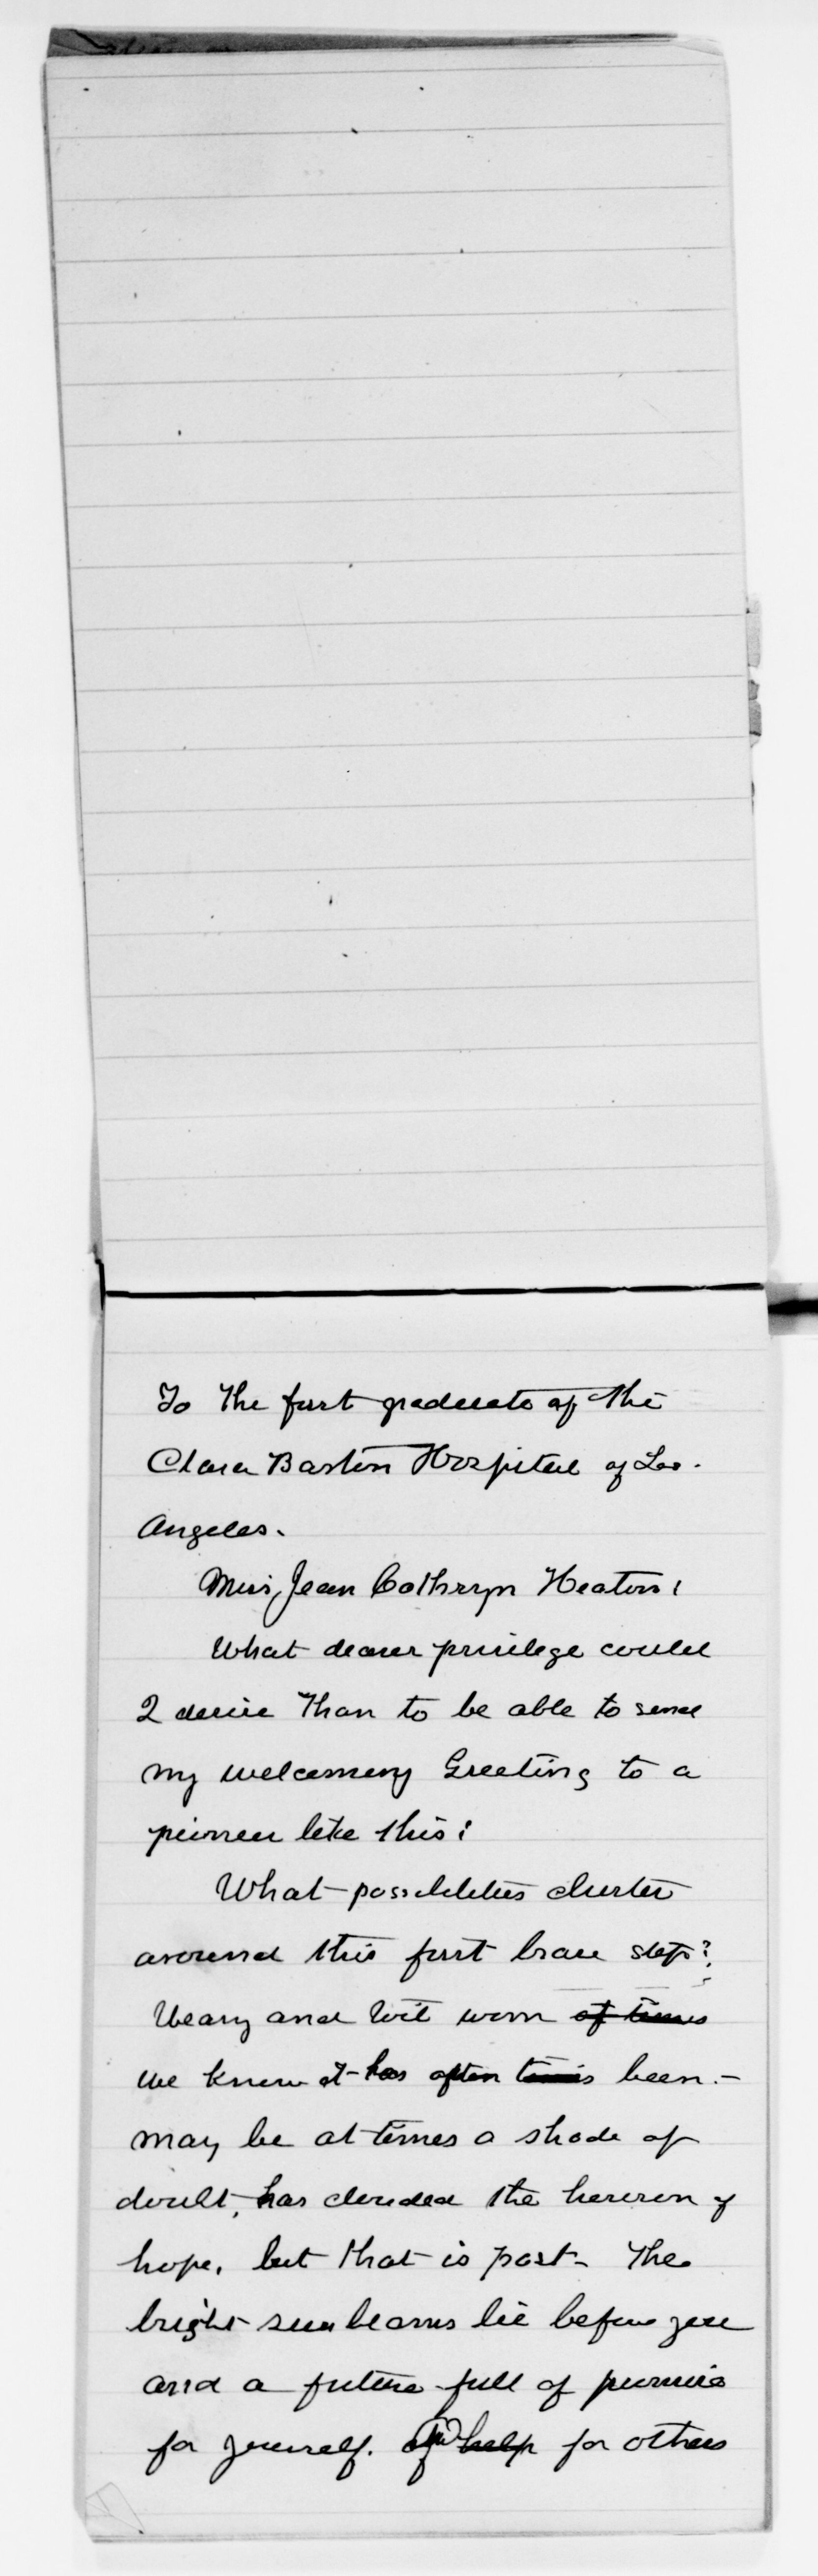 To the first graduate of the
Clara Barton Hospital of Los.
Angeles.
Miss, Jean Cathryn Heaton!
What dearer privilege could
I desire than to be able to send
my welcoming Greeting to a
pioneer like this!
What possibilities cluster
around this first brave step?
Weary and toil worn of times
we know it has often times been. -
may be at times a shade of
doubt, has clouded the horizon of
hope, but that is past - The
bright sun beams lie before you
and a future full of promise
for yourself. of help for others